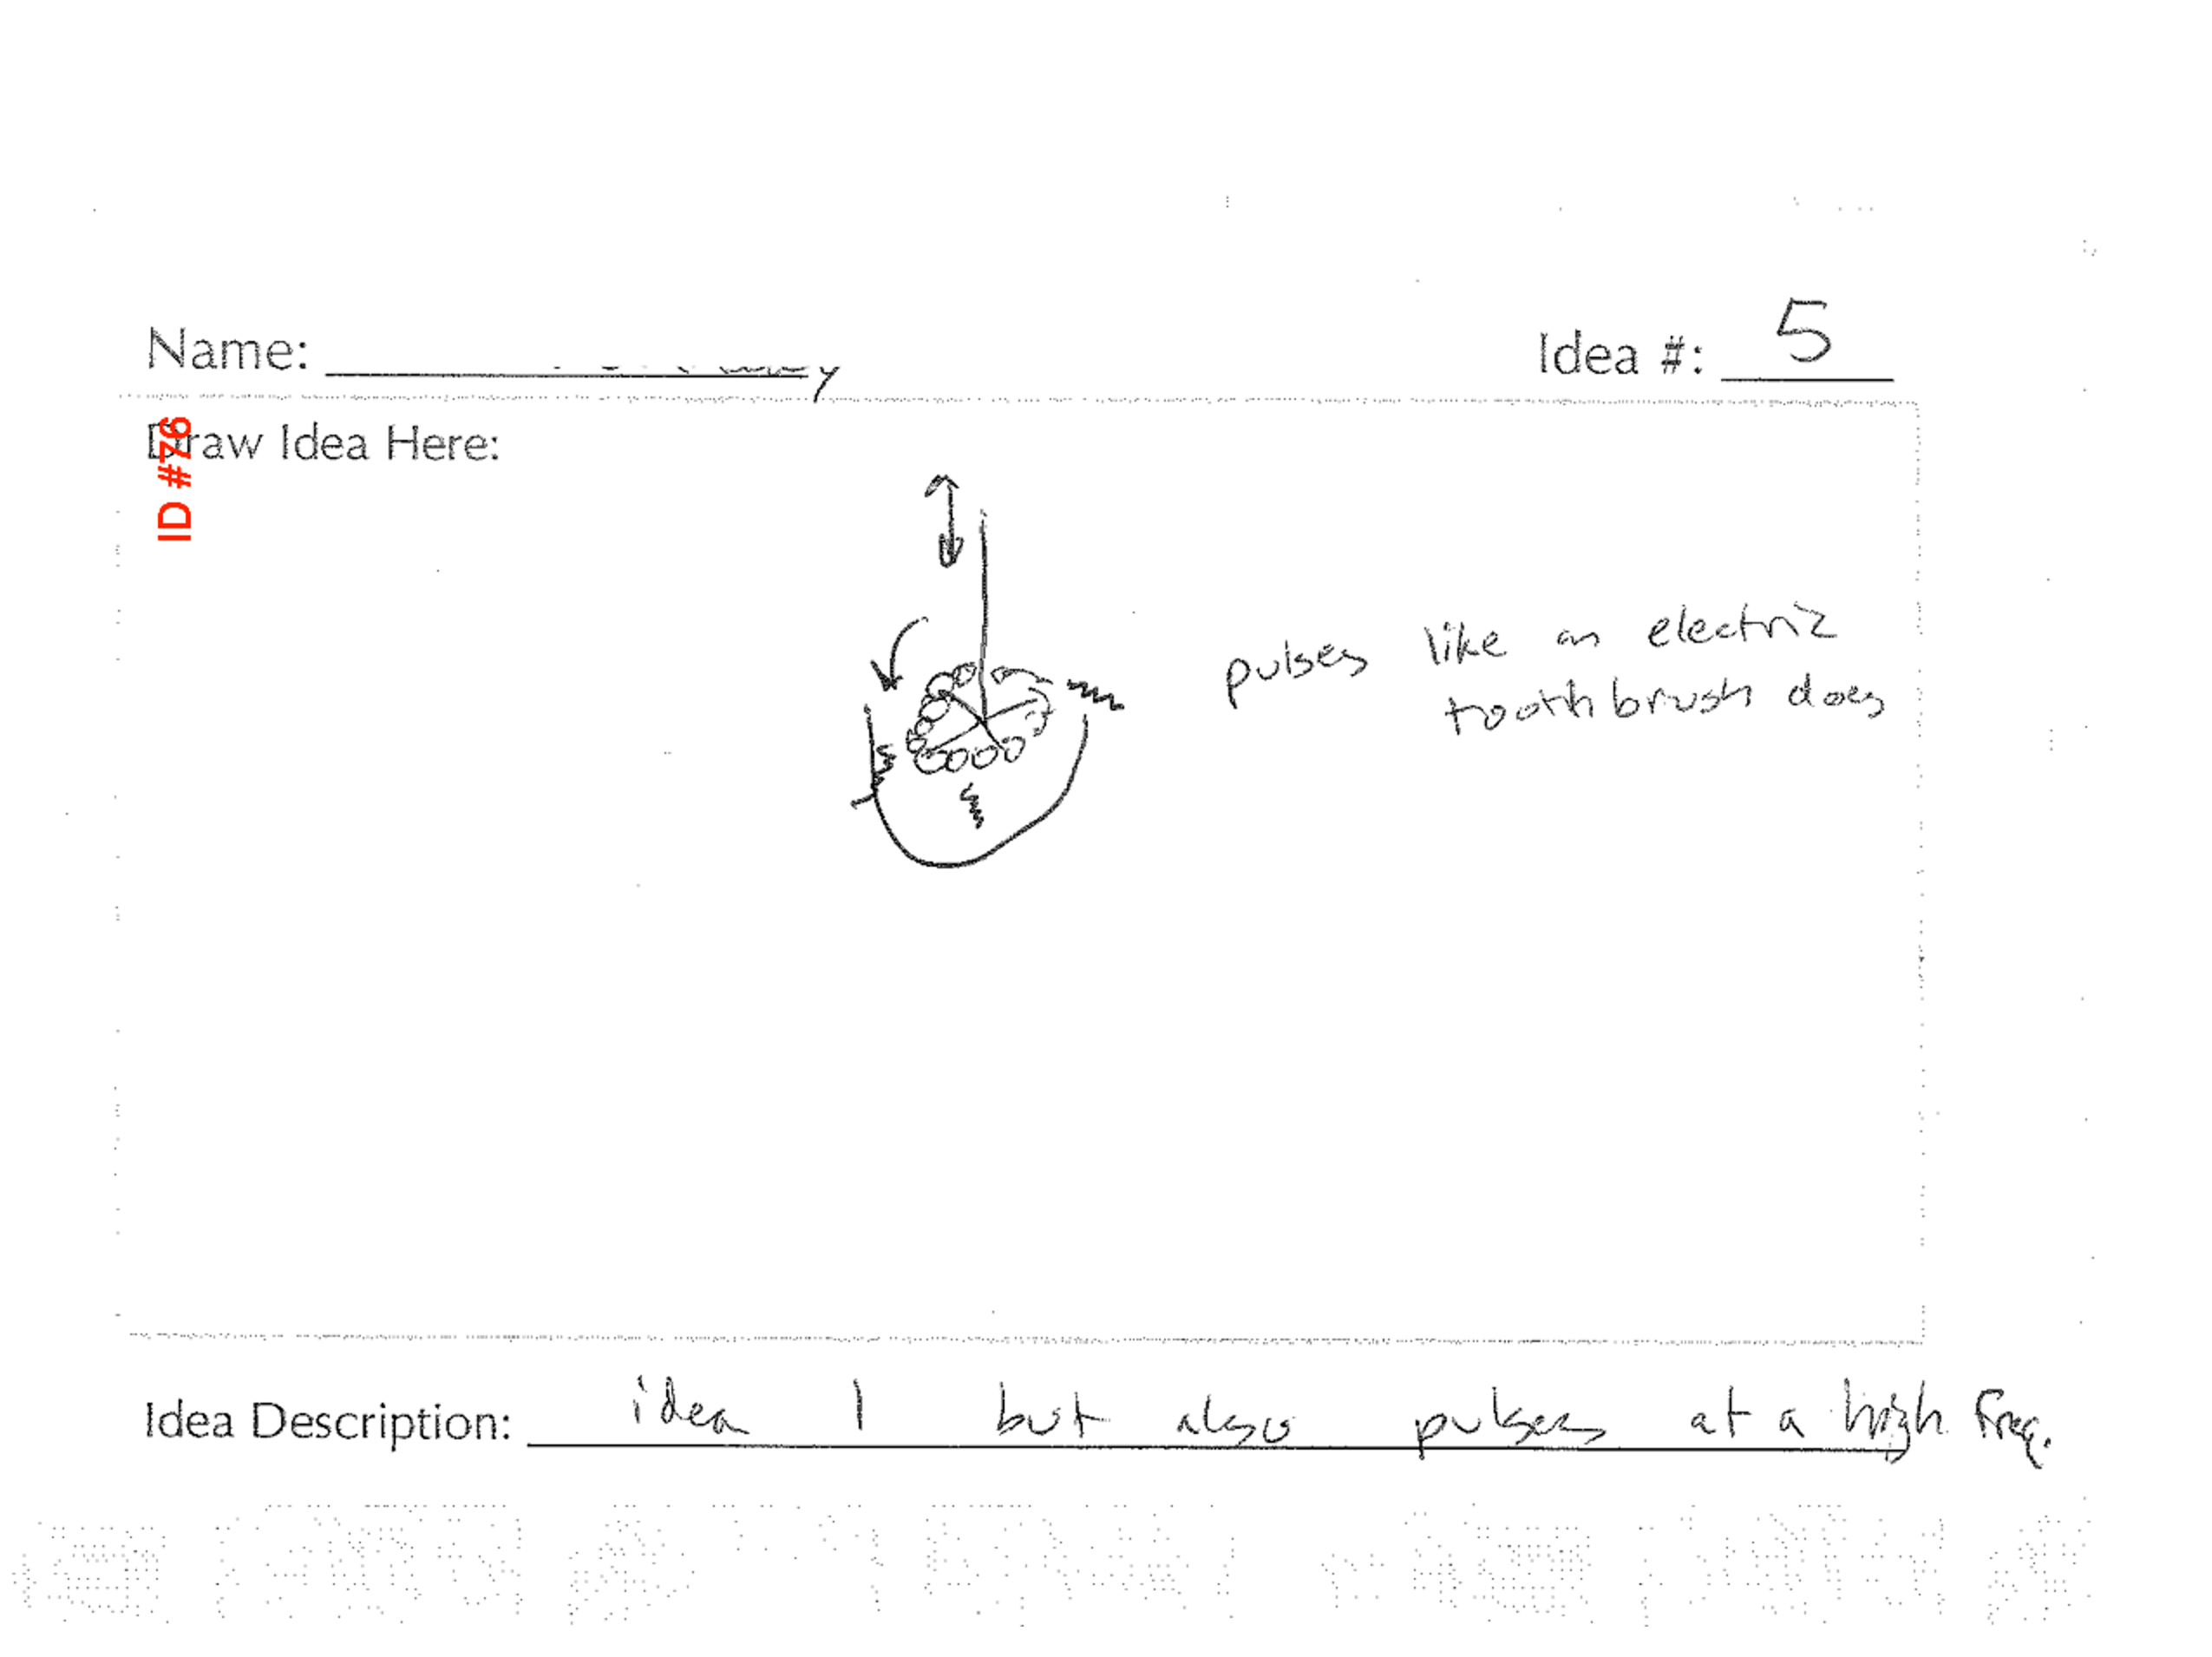 Name: Idea #: 5
ID #76
Draw Idea Here:
pulses like an electric
toothbrush does
Idea Description: idea 1 but also pulses at a high freq.